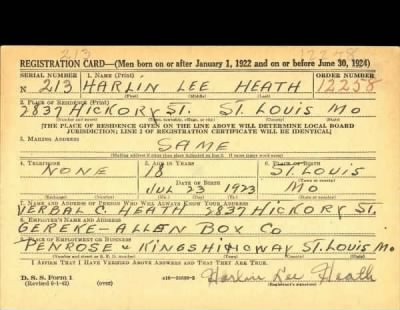 213 12258
REGISTRATION CARD—(Men born on or after January 1, 1922 and on or before June 30, 1924)
SERIAL NUMBER 1. Name (Print) ORDER NUMBER
N 213 HARLIN LEE HEATH 12258
(First) (Middle) (Last)
2. Place of Residence (Print)
2837 HICKORY ST. ST. LOUIS MO
(Number and street) (Town, township, village, or city) (County) (State)
[THE PLACE OF RESIDENCE GIVEN ON THE LINE ABOVE WILL DETERMINE LOCAL BOARD
JURISDICTION; LINE 2 OF REGISTRATION CERTIFICATE WILL BE IDENTICAL]
3. Mailing Address
SAME
[Mailing address if other than place indicated on line 2. If same insert word same]
4. Telephone 5. Age in Years 6. Place of Birth
NONE 18 ST. LOUIS
JUL 23 1923 MO
7. Name and Address of Person Who Will Always Know Your Address
VERBAL C. HEATH 2837 HICKORY ST.
8. Employer's Name and Address
GEREKE-ALLEN BOX CO
9. Place of Employment or Business
PENROSE & KINGSHIHGWAY ST. LOUIS MO
(Number and street or R. F. D. number) (Town) (County) (State)
I Affirm That I Have Verified Above Answers and That They Are True.
D. S. S. Form 1 Harlin Lee Heath
(Revised 6-1-42) (over) (Registrant's signature)